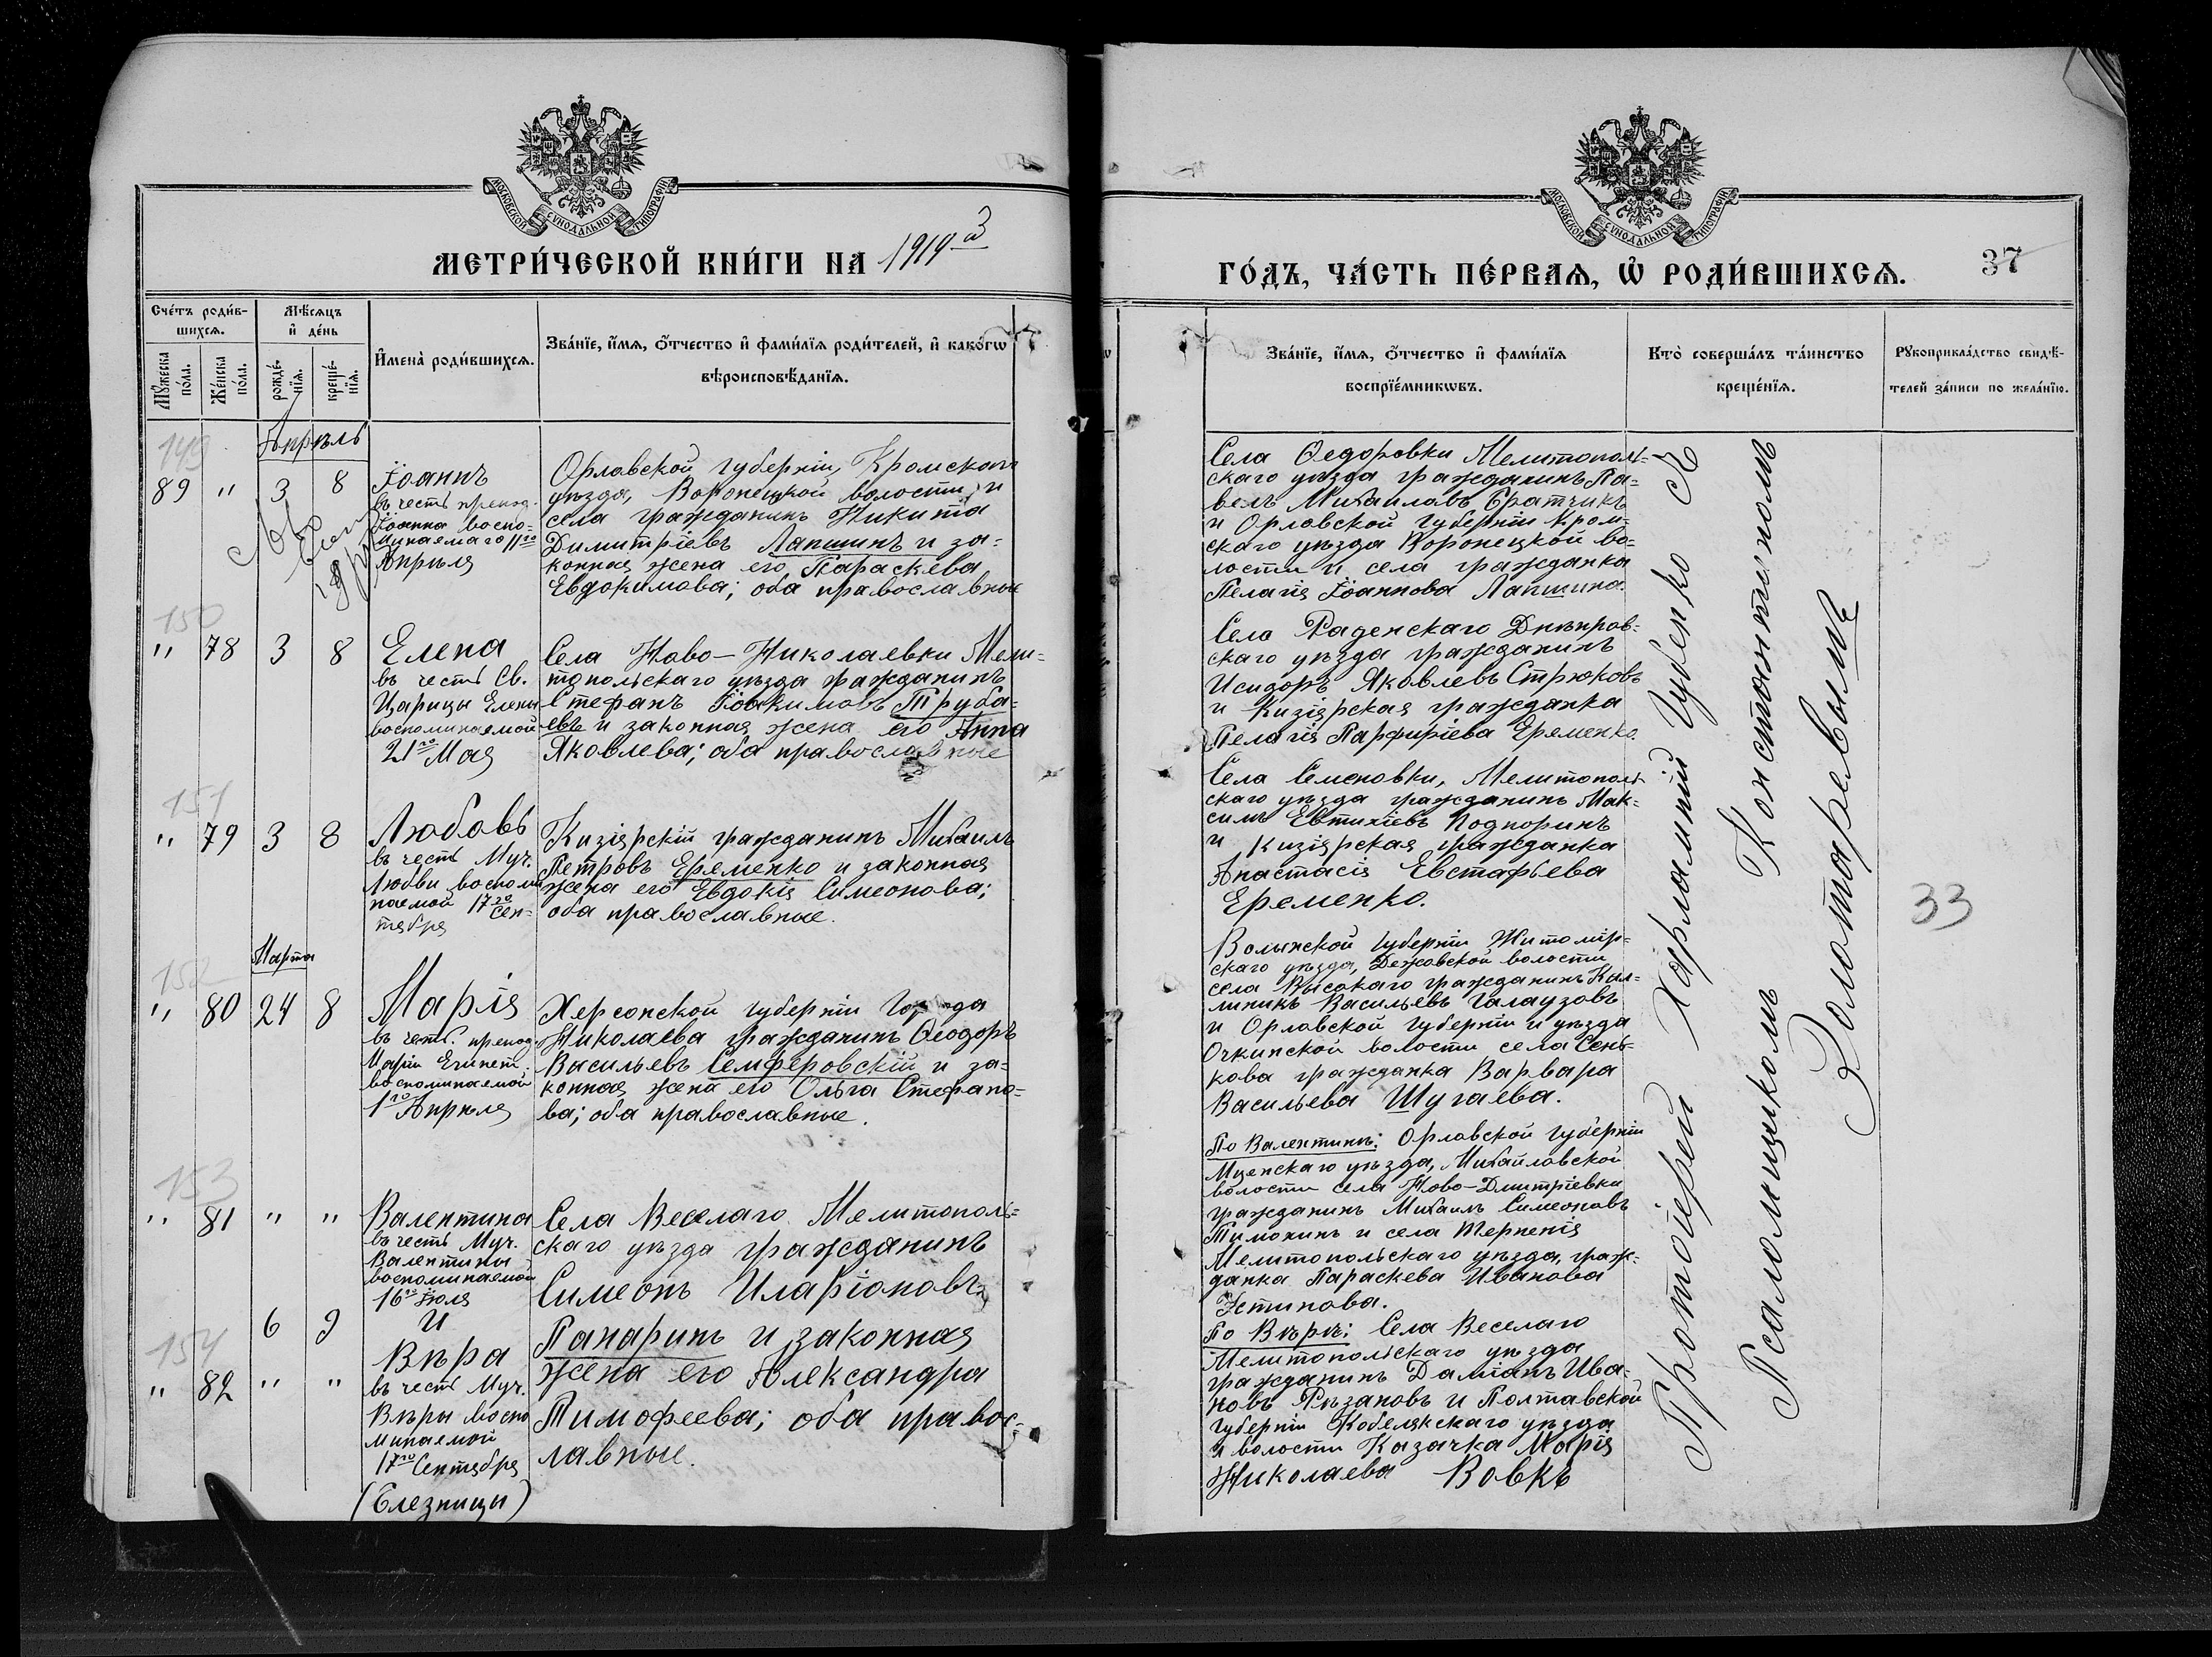 МОСКОВСКОЙ СУНОДАЛЬНОЙ ТИПОГРАФІИ
МЕТРИ́ЧЕСКОЙ КНИ́ГИ НА 191
Сче́тъ роди́в-
шихсѧ.
Мѣ́сѧцъ
и҆ де́нь
Мꙋ́жеска
по́ла.
Же́нска
по́ла.
рожде́-
нїѧ.
креще́-
нїѧ.
И҆мена̀ роди́вшихсѧ.
Зва́нїе, и҆́мѧ, ѻ҆́тчество и҆ фами́лїѧ роди́телей, и҆ како́гѡ
вѣроисповѣ́данїѧ.
149
Апрѣль
89 " 3 8
Іоаннъ
въ честь препод.
Іоанна воспо-
минаемаго 11го
Апрѣля
Орловской губерніи, Кромскаго
уѣзда, Воронецкой волости и
села гражданинъ Никита
Димитріевъ Лапшинъ и за-
конная жена его Параскева
Евдокимова; оба православные
150
" 78 3 8
Елена
въ честь Св.
Царицы Елены
воспоминаемой
21го Мая
Села Ново-Николаевки Мели-
топольскаго уѣзда гражданинъ
Стефанъ Іоакимовъ Труба-
евъ и законная жена его Анна
Яковлева; оба православные
151
" 79 3 8
Любовь
въ честь Муч.
Любви воспоми
наемой 17го Сен-
тября
Кизіярскій гражданинъ Михаилъ
Петровъ Еременко и законная
жена его Евдокія Симеонова;
оба православные.
Марта
152
" 80 24 8
Марія
въ честь препод.
Маріи Египет.
воспоминаемой
1го Апрѣля
Херсонской губерніи города
Николаева гражданинъ Ѳеодоръ
Васильевъ Семферовскій и за-
конная жена его Ольга Стефано-
ва; оба православные.
153
" 81 " "
Валентина
въ честь Муч.
Валентины
воспоминаемой
16го Іюля
И
6 9
154
" 82 " "
Вѣра
въ честь Муч.
Вѣры воспо
минаемой
17го Сентября
(Близницы)
Села Веселаго Мелитополь-
скаго уѣзда гражданинъ
Симеонъ Иларіоновъ
Панаринъ и законная
жена его Александра
Тимофеева; оба правос-
лавные.
МОСКОВСКОЙ СУНОДАЛЬНОЙ ТИПОГРАФІИ
ГО́ДЪ, ЧА́СТЬ ПЕ́РВАѦ, Ѡ҆ РОДИ́ВШИХСѦ.
37
Зва́нїе, и҆́мѧ, ѻ҆́тчество и҆ фами́лїѧ
воспрїе́мникѡвъ.
Кто̀ соверша́лъ та́инство
креще́нїѧ.
Рꙋкоприкла́дство свидѣ́-
телей за́писи по жела́нїю.
Села Ѳедоровки Мелитополь-
скаго уѣзда гражданинъ Па-
велъ Михаиловъ Братчикъ
и Орловской губерніи Кром-
скаго уѣзда Воронецкой во-
лости и села гражданка
Пелагія Іоаннова Лапшина.
Села Раденскаго Днѣпров-
скаго уѣзда гражданинъ
Исидоръ Яковлевъ Стрюковъ
и Кизіярская гражданка
Пелагія Парфиріева Еременко.
Села Семеновки, Мелитополь
скаго уѣзда гражданинъ Мак-
симъ Евтихіевъ Подпоринъ
и Кизіярская гражданка
Анастасія Евстафьева
Еременко.
Волынской губерніи Житомір-
скаго уѣзда, волости
села Высокаго гражданинъ Кал-
линикъ Васильевъ Галаузовъ
и Орловской губерніи и уѣзда
волости села Сень-
кова гражданка Варвара
Васильева Шугаева.
По Валентинѣ: Орловской губерніи
Мценскаго уѣзда, Михайловской
волости села Ново-Дмитріевки
гражданинъ Михаилъ Симеоновъ
Тимохинъ и села Терпенія
Мелитопольскаго уѣзда, граж-
данка Параскева Иванова
Устинова.
По Вѣрѣ: Села Веселаго
Мелитопольскаго уѣзда
гражданинъ Даміанъ Ива-
новъ Рѣзановъ и Полтавской
губерніи Кобелякскаго уѣзда
и волости Казачка Марія
Николаева Вовкъ
Протоіерей Харлампій Губенко съ
Псаломщикомъ Константиномъ
Золотаревымъ
33